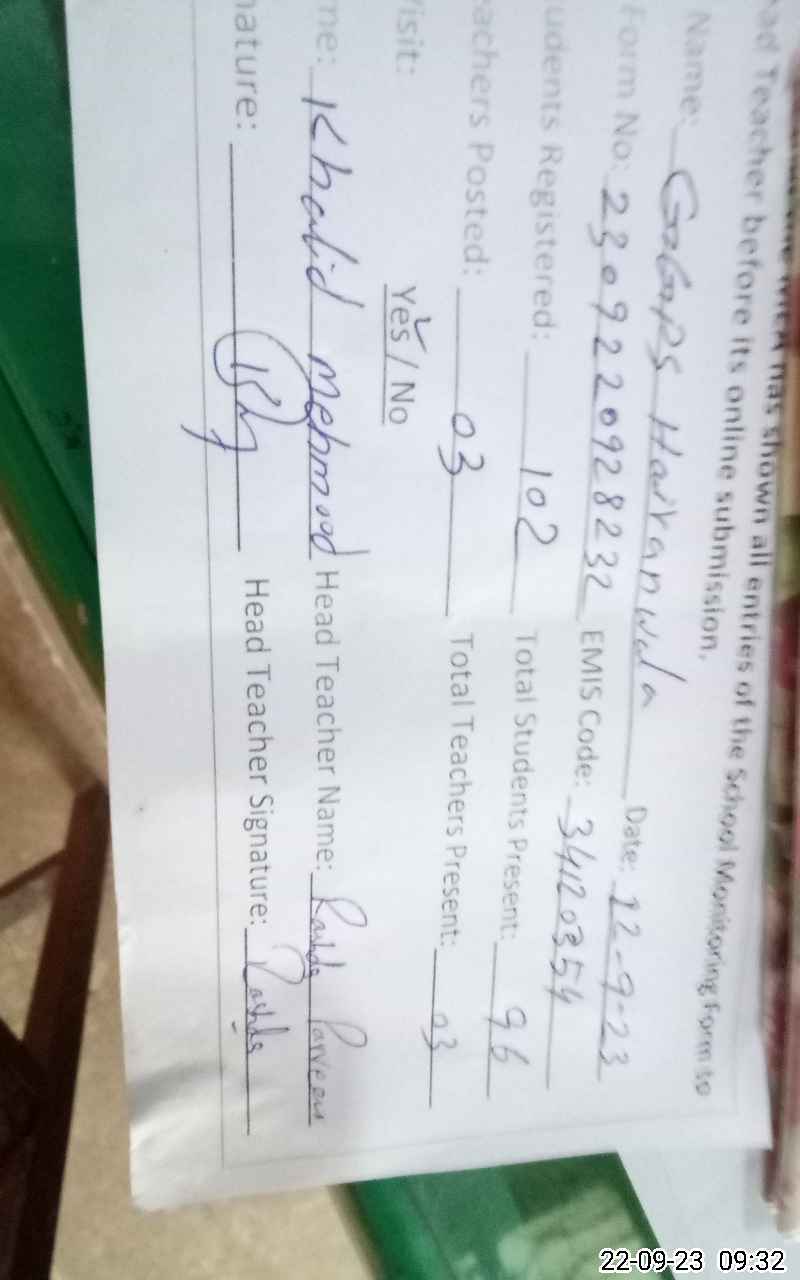 has shown all entries of the School Monitoring Form to
ad Teacher before its online submission.
Name: GGPS Hairanwala Date: 22-9-23
Form No: 2309220928232 EMIS Code: 34120354
udents Registered: 102 Total Students Present: 96
achers Posted: 03 Total Teachers Present: 03
isit: Yes / No
me: Khalid Mehmood Head Teacher Name: Rashda Parveen
nature: Head Teacher Signature: Rashda
22-09-23 09:32